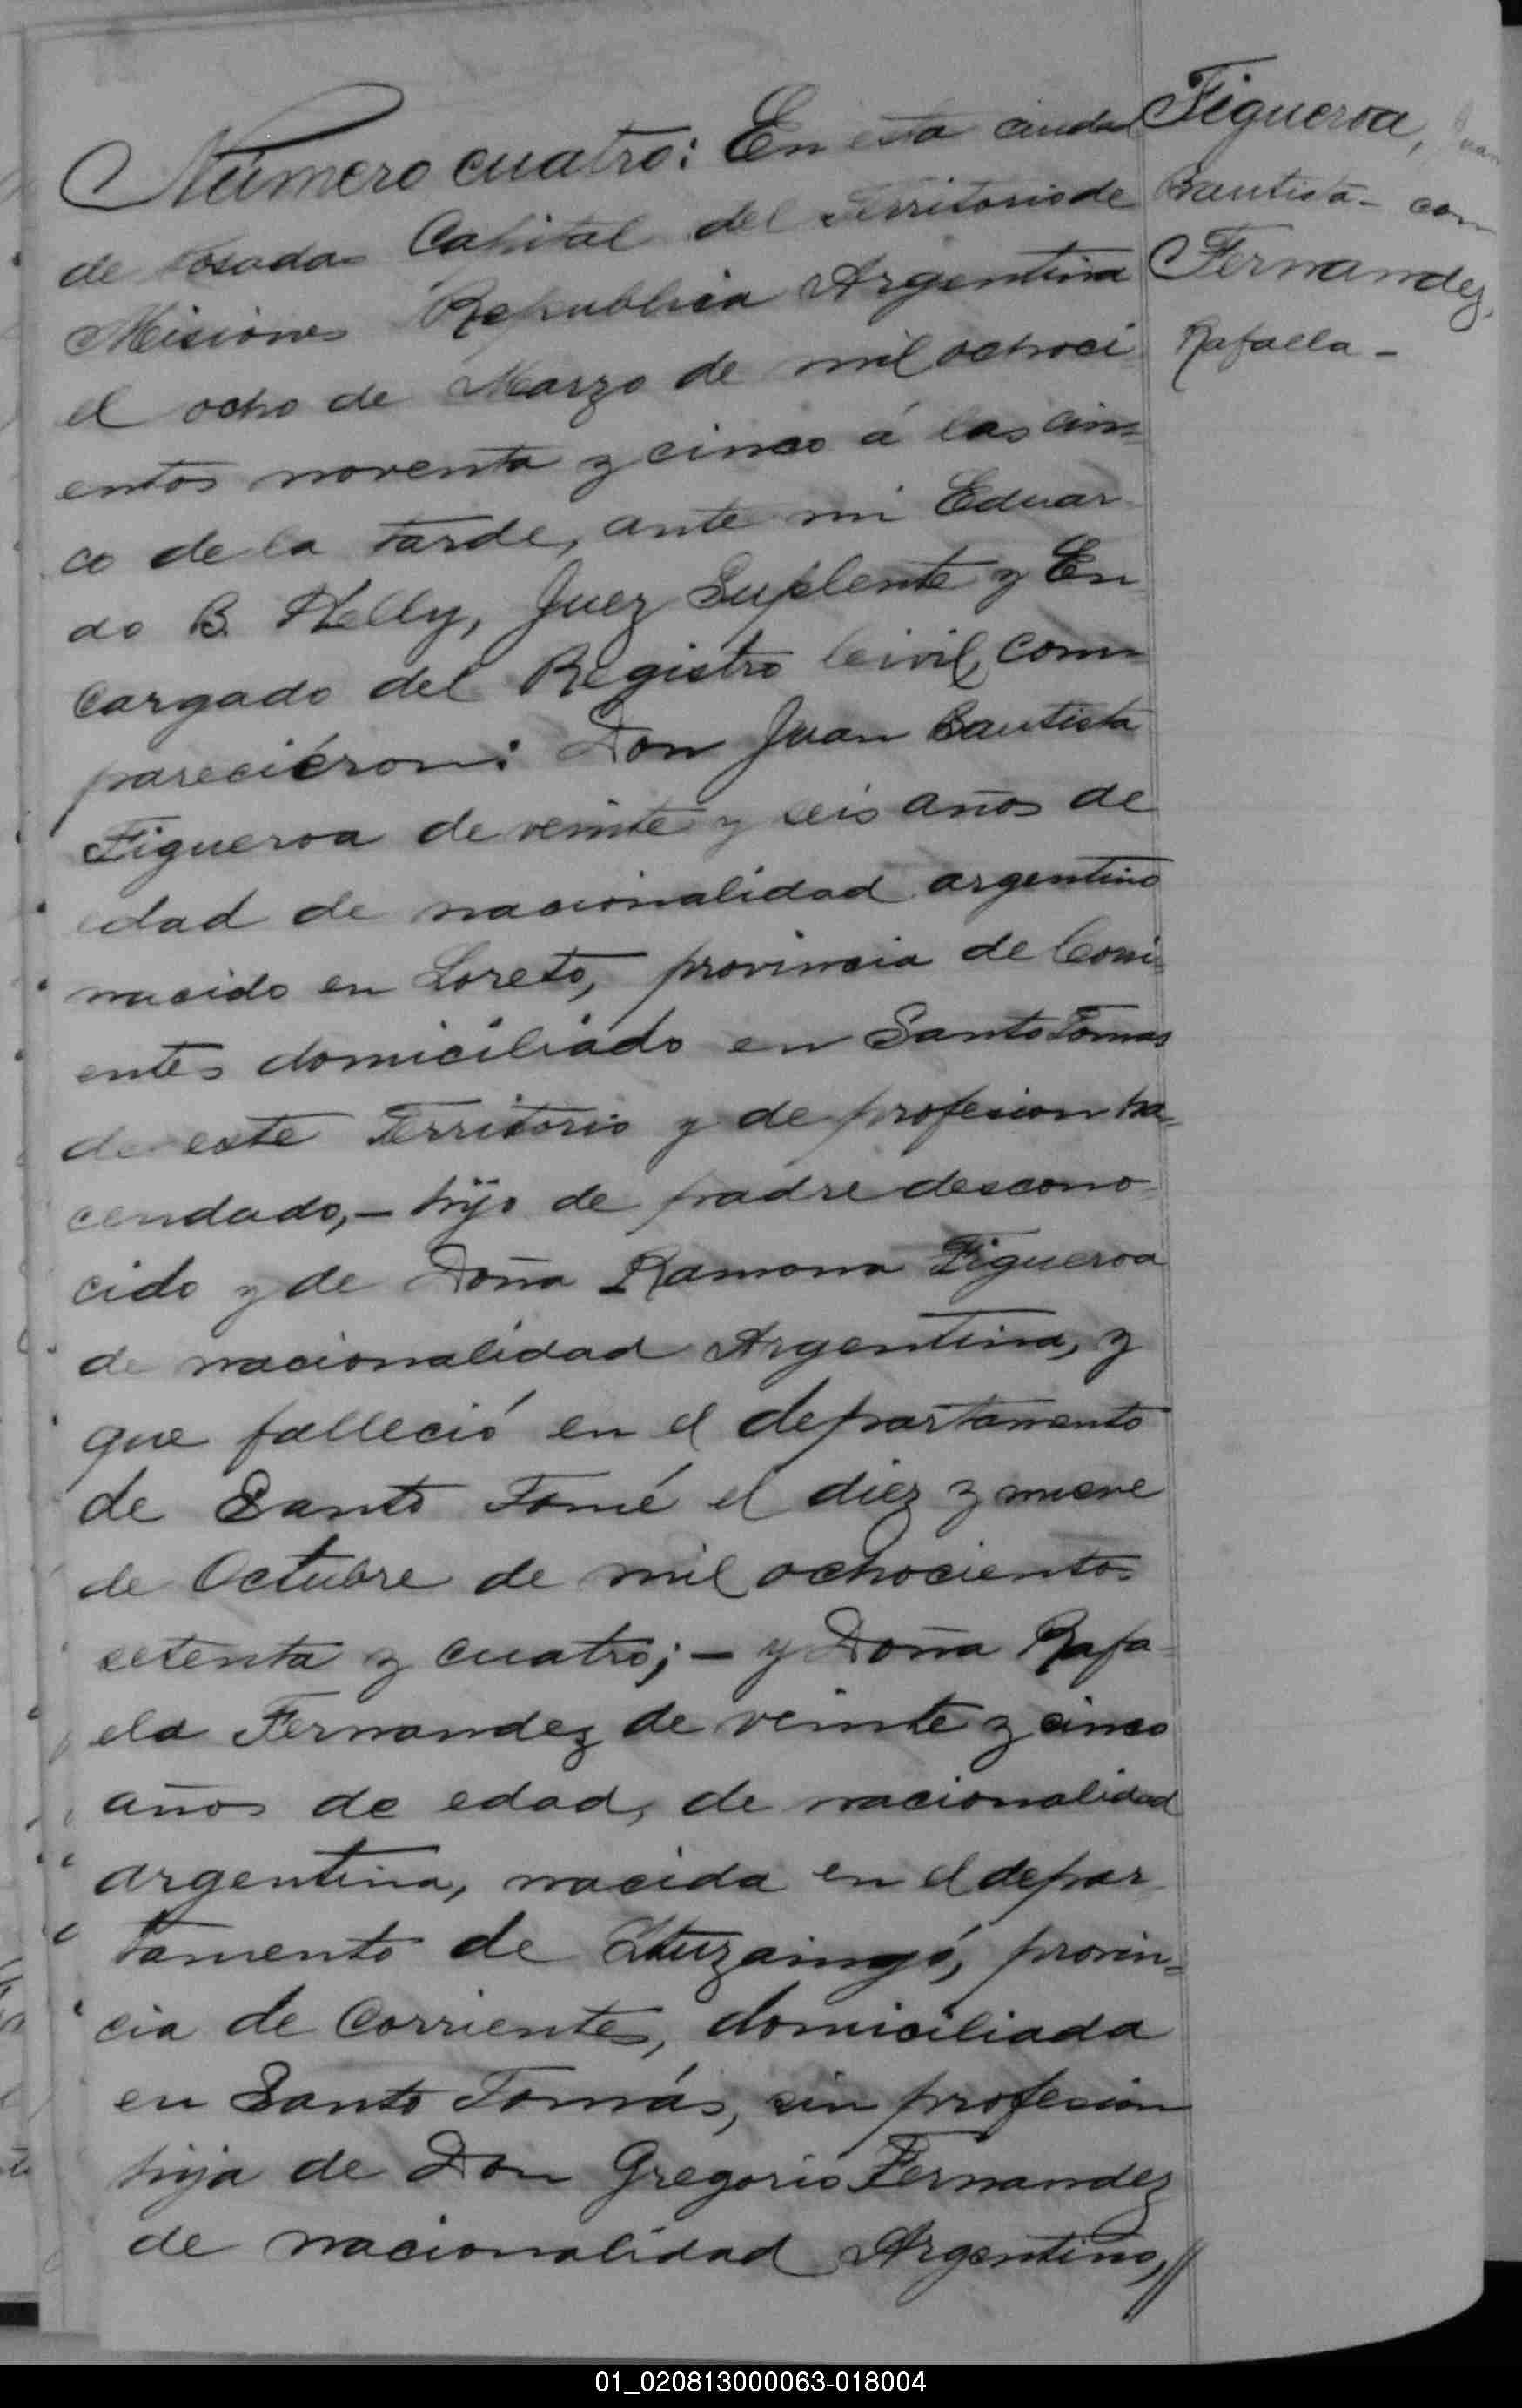 Número cuatro: En esta ciudad
de Posadas Capital del Territorio de
Misiones República Argentina
el ocho de Marzo de mil ochoci
entos noventa y cinco á las cin=
co de la tarde, ante mi Eduar
do B. Kelly, Juez Suplente y En
cargado del Registro Civil, com=
pareciéron: Don Juan Bautista
Figueroa de veinte y seis años de
edad de nacionalidad argentino
nacido en Loreto, provincia de Corri=
entes domiciliado en Santo Tomas
de este Territorio y de profesion ha=
cendado,- hijo de padre descono
cido y de Doña Ramona Figueroa
de nacionalidad Argentina, y
que falleció en el departamento
de Santo Tomé el diez y nueve
de Octubre de mil ochocientos
setenta y cuatro;- y Doña Rafa-
ela Fernandez de veinte y cinco
años de edad, de nacionalidad
argentina, nacida en el depar
tamento de Ituzaingó, provin=
cia de Corrientes, domiciliada
en Santo Tomás, sin profesion
hija de Don Gregorio Fernandez
de nacionalidad Argentino,//
Figueroa, Juan
Bautista- con
Fernandez,
Rafaela-
01_020813000063-018004